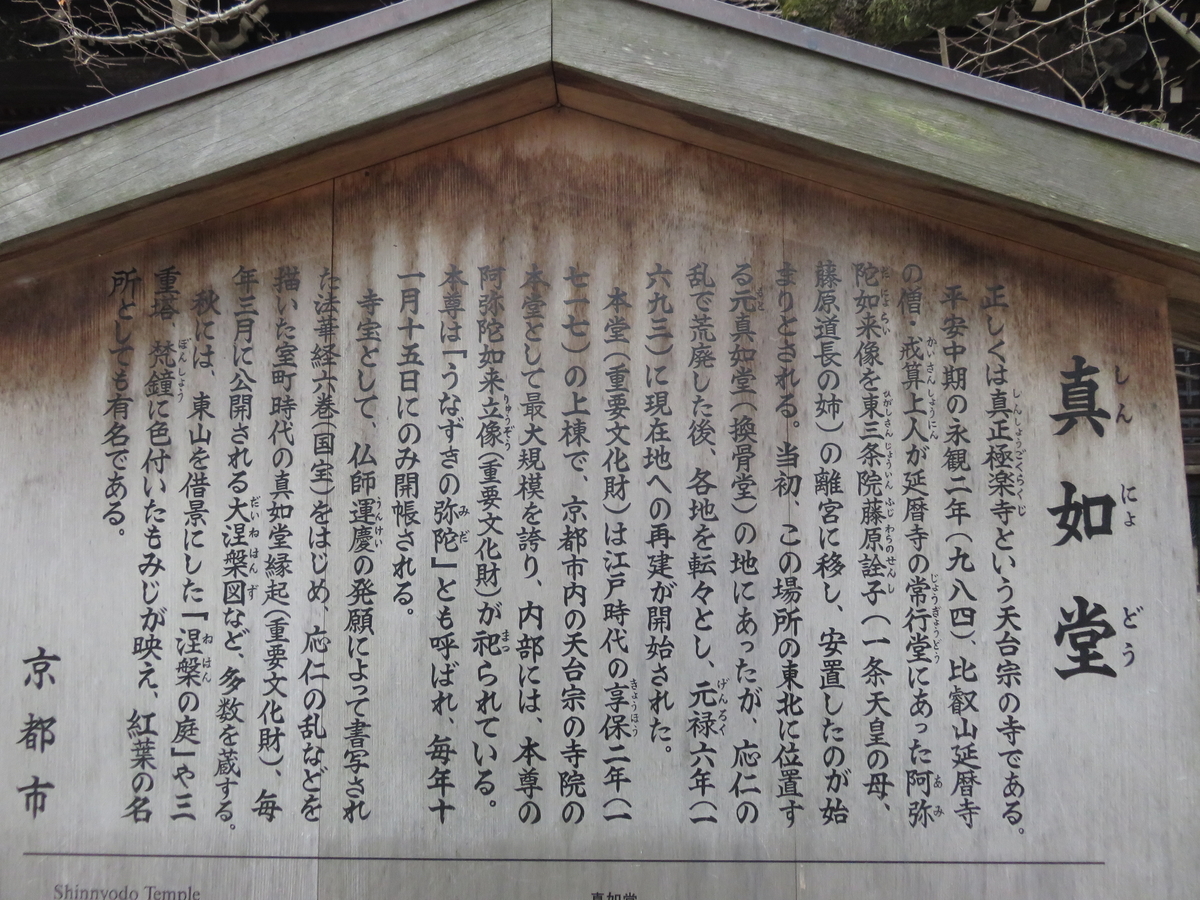 真如堂
正しくは真正極楽寺という天台宗の寺である。
平安中期の永観二年(九八四)、比叡山延暦寺
の僧・戒算上人が延暦寺の常行堂にあった阿弥
陀如来像を東三条院藤原詮子(一条天皇の母、
藤原道長の姉)の離宮に移し、安置したのが始
まりとされる。当初、この場所の東北に位置す
る元真如堂(換骨堂)の地にあったが、応仁の
乱で荒廃した後、各地を転々とし、元禄六年(一
六九三)に現在地への再建が開始された。
本堂(重要文化財)は江戸時代の享保二年(一
七一七)の上棟で、京都市内の天台宗の寺院の
本堂として最大規模を誇り、内部には、本尊の
阿弥陀如来立像(重要文化財)が祀られている。
本尊は「うなずきの弥陀」とも呼ばれ、毎年十
一月十五日にのみ開帳される。
寺宝として、仏師運慶の発願によって書写され
た法華経六巻(国宝)をはじめ、応仁の乱などを
描いた室町時代の真如堂縁起(重要文化財)、毎
年三月に公開される大涅槃図など、多数を蔵する。
秋には、東山を借景にした「涅槃の庭」や三
重塔、梵鐘に色付いたもみじが映え、紅葉の名
所としても有名である。
京都市
Shinnyodo Temple
真如堂